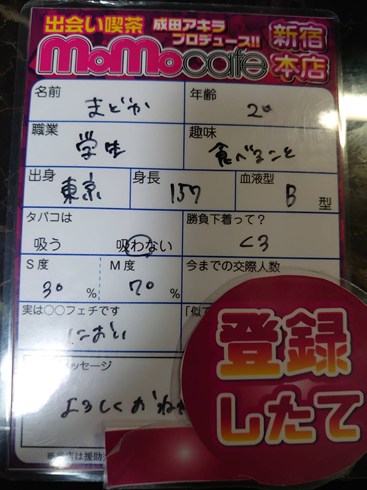 出会い喫茶 成田アキラ
プロデュース!!
MoMocafe
新宿
本店
名前 まどか
年齢 20
職業 学生
趣味 食べること
出身 東京
身長 157
血液型 B 型
タバコは
吸う 吸わない
勝負下着って?
くろ
S度 30 %
M度 70 %
今までの交際人数
実は○○フェチです
におい
「似て
メッセージ
よろしくおねが
登録
したて